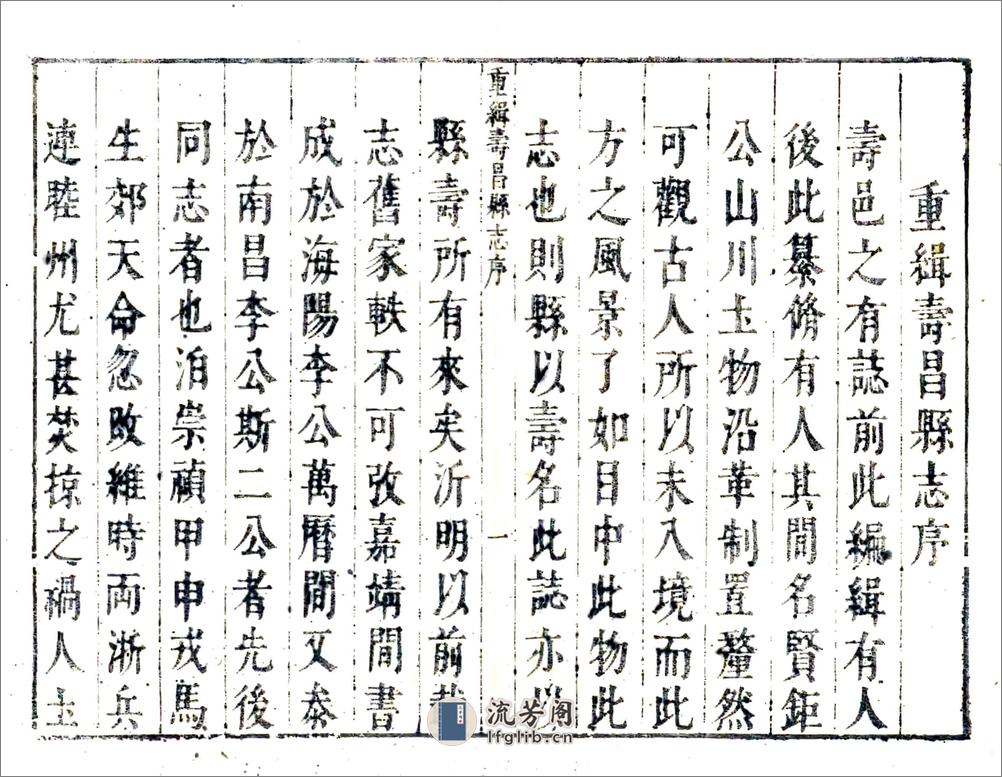 重緝壽昌縣志序
壽邑之有誌前此編緝有人
後此纂脩有人其間名賢鉅
公山川土物沿革制置釐然
可觀古人所以未入境而此
方之風景了如目中此物此
志也則縣以壽名此誌亦
重緝壽昌縣志序
一
縣壽所有來矣沂明以前
志舊家軼不可攷嘉靖間書
成於海陽李公萬曆間又
於南昌李公斯二公者先後
同志者也洎崇禎甲申戎馬
生郊天命忽改維時両浙兵
連睦州尤甚焚掠之禍人土
流芳阁
lfglib.cn